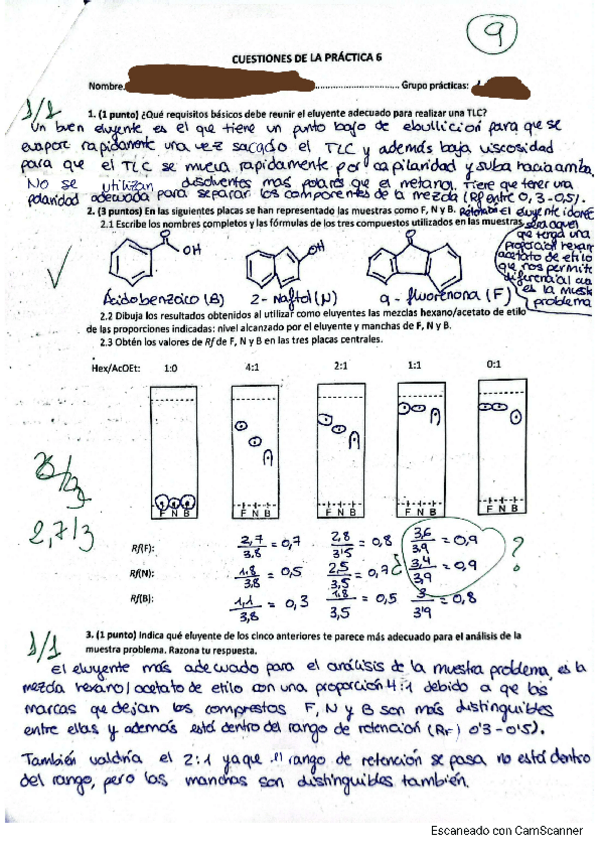 9
CUESTIONES DE LA PRÁCTICA 6
Nombre Grupo prácticas:
1/1
1. (1 punto) ¿Qué requisitos básicos debe reunir el eluyente adecuado para realizar una TLC?
Un buen eluyente es el que tiene un punto bajo de ebullición para que se
evapore rapidamente una vez sacado el TLC y además baja viscosidad
para que el TLC se mueva rapidamente por capilaridad y suba hacia arriba.
No se utilizan disolventes mas polares que el metanol. Tiene que tener una
polaridad adecuada para separar los componentes de la mezcla (Rf entre 0,3-0,5).
2. (3 puntos) En las siguientes placas se han representado las muestras como F, N y B.
el eluyente
2.1 Escribe los nombres completos y las fórmulas de los tres compuestos utilizados en las muestras.
sera aquel
que tenga una
proporción hexano
acetato de etilo
que nos permite
diferenciar cual
es la muestra
problema
O
OH
OH
O
Ácido benzoico (B) 2-Naftol (N) 9-fluorenona (F)
2.2 Dibuja los resultados obtenidos al utilizar como eluyentes las mezclas hexano/acetato de etilo
de las proporciones indicadas: nivel alcanzado por el eluyente y manchas de F, N y B.
2.3 Obtén los valores de Rf de F, N y B en las tres placas centrales.
Hex/AcOEt: 1:0 4:1 2:1 1:1 0:1
F N B F N B F N B F N B F N B
2,7/3
Rf(F): 2,7/3,8 = 0,7 2,8/3'5 = 0,8 3,6/3,9 = 0,9
Rf(N): 1,8/3,8 = 0,5 2,5/3,5 = 0,7 ¿ 3,4/3,9 = 0,9 ?
Rf(B): 1,1/3,8 = 0,3 1,8/3,5 = 0,5 3/3'9 = 0,8
1/1
3. (1 punto) Indica qué eluyente de los cinco anteriores te parece más adecuado para el análisis de la
muestra problema. Razona tu respuesta.
El eluyente más adecuado para el análisis de la muestra problema, es la
mezcla hexano/acetato de etilo con una proporción 4:1 debido a que las
marcas que dejan los comprestos F, N y B son más distinguibles
entre ellas y además está dentro del rango de retención (Rf) 0'3-0'5).
También valdría el 2:1 ya que rango de retención se pasa no está dentro
del rango, pero las manchas son distinguibles también.
Escaneado con CamScanner